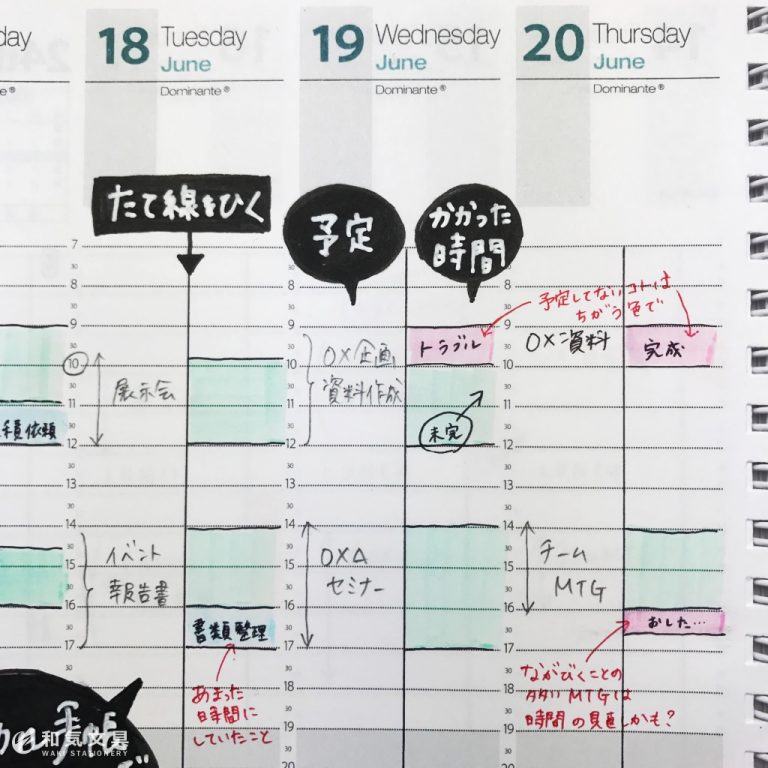 day
18 Tuesday
June
Dominante®
19 Wednesday
June
Dominante®
20 Thursday
June
Dominante®
たて線をひく
予定
かかった
時間
予定してないコトは
ちがう色で
7
30
8
30
9
30
10
30
11
30
12
30
13
30
14
30
15
30
16
30
17
30
18
30
19
30
20
積依頼
展示会
イベント
報告書
書類整理
あまった
時間に
していたこと
○×企画
資料作成
トラブル
未完
○×△
セミナー
○×資料
完成
チーム
MTG
おした…
ながびくことの
多いMTGは
時間の見直しかも?
手帳
和気文具
WAKI STATIONERY